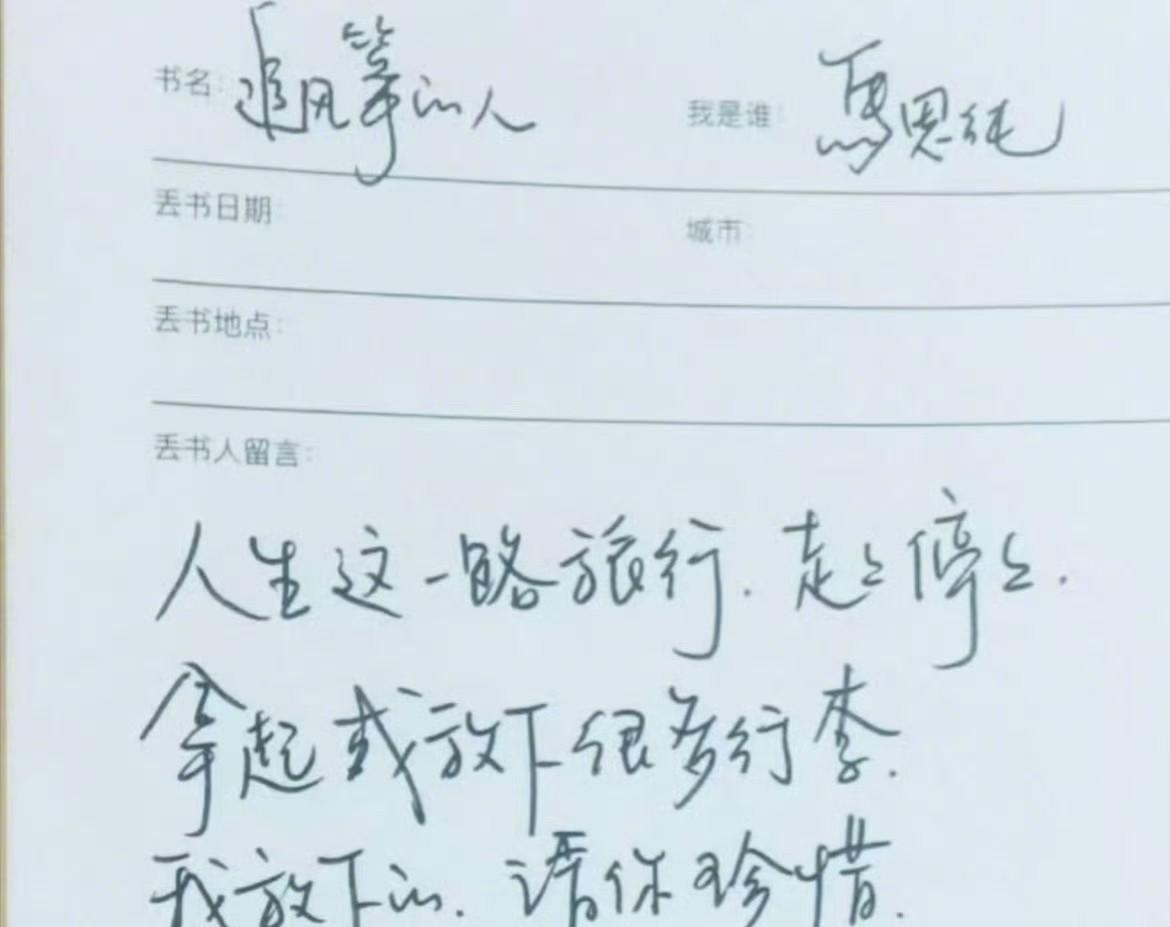 书名: 追风筝的人 我是谁: 馬思纯
丢书日期: 城市:
丢书地点:
丢书人留言:
人生这一路旅行. 走走停停.
拿起或放下很多行李.
我放下的. 请你珍惜.